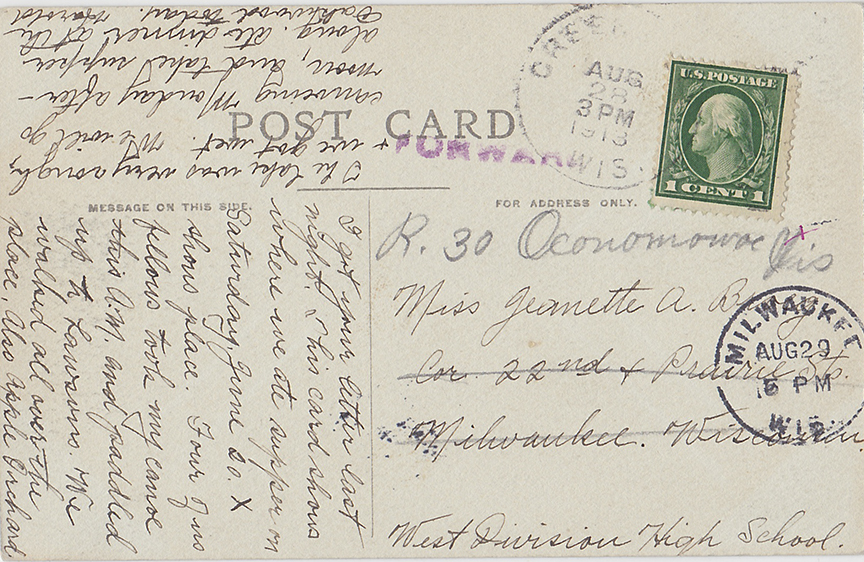 POST CARD
MESSAGE ON THIS SIDE.
FOR ADDRESS ONLY.
U.S. POSTAGE
1 CENT 1
AUG
28
3 PM
1913
WIS.
FORWAR
R. 30 Oconomowoc Wis
Miss Jeanette A.
Cor. 22nd & Prairie Sts.
Milwaukee. Wisconsin.
West Division High School.
MILWAUKEE
AUG 29
PM
WIS.
I got your letter last
night. This card shows
where we ate supper on
Saturday June 20. X
shows place. Four of us
fellows took my canoe
this A.M. and paddled
up to Lawsons. We
walked all over the
place. Also Apple Orchard
The lake was very rough
& we got wet. We will go
canoeing Monday after-
noon, and take supper
along. Ate dinner at the
Oakwood today. Harold